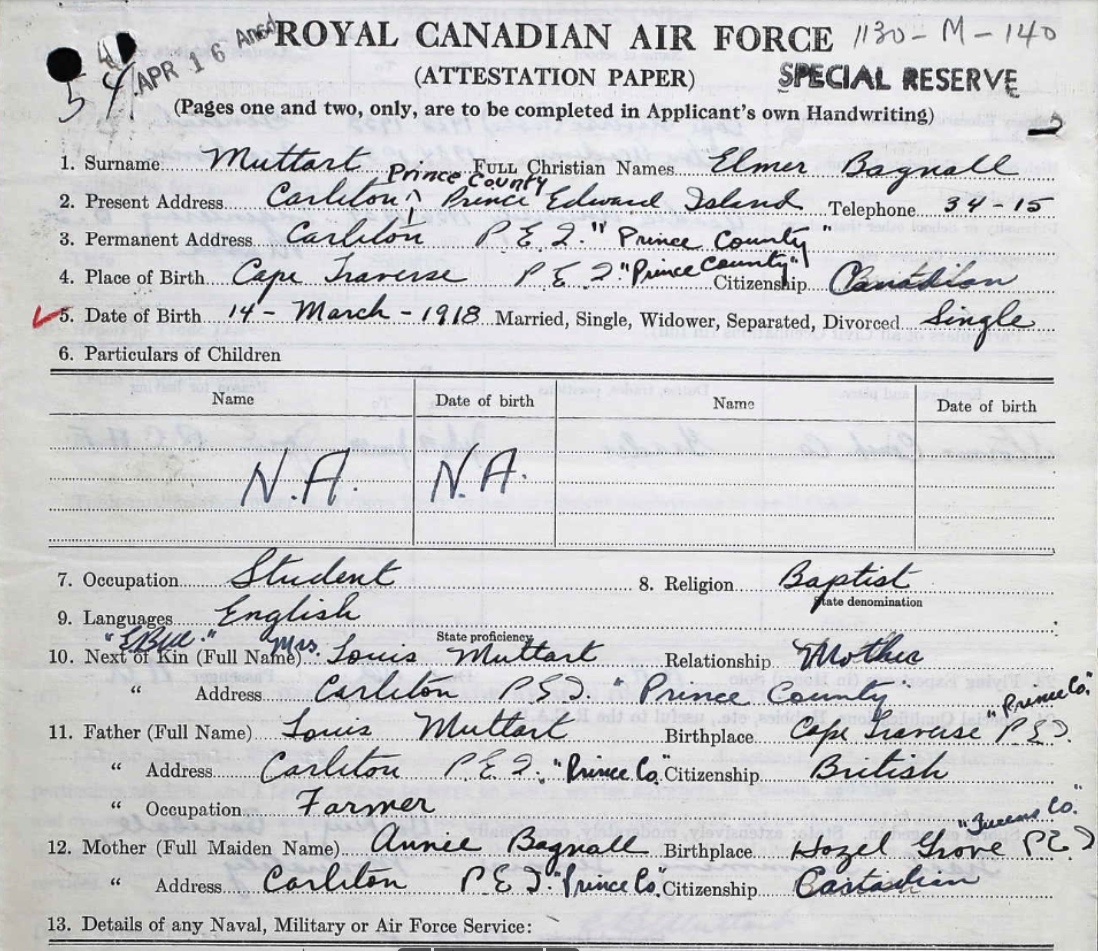 APR 16
ROYAL CANADIAN AIR FORCE 1130-M-140
(ATTESTATION PAPER) SPECIAL RESERVE
(Pages one and two, only, are to be completed in Applicant's own Handwriting)
1. Surname Muttart FULL Christian Names Elmer Bagnall
Prince County
2. Present Address Carleton Prince Edward Island Telephone 34-15
3. Permanent Address Carleton P E I. "Prince County"
4. Place of Birth Cape Traverse P E I "Prince County" Citizenship Canadian
5. Date of Birth 14 - March - 1918 Married, Single, Widower, Separated, Divorced Single
6. Particulars of Children
Name Date of birth Name Date of birth
N.A. N.A.
7. Occupation Student 8. Religion Baptist
State denomination
9. Languages English
State proficiency
10. Next of Kin (Full Name) Mrs. Louis Muttart Relationship Mother
" Address Carleton P.E.I. "Prince County"
"Prince Co."
11. Father (Full Name) Louis Muttart Birthplace Cape Traverse P.E.I.
" Address Carleton P.E.I. "Prince Co." Citizenship British
" Occupation Farmer
"Queens Co."
12. Mother (Full Maiden Name) Annee Bagnall Birthplace Hazel Grove P.E.I
" Address Carleton P.E.I. "Prince Co." Citizenship Canadian
13. Details of any Naval, Military or Air Force Service: